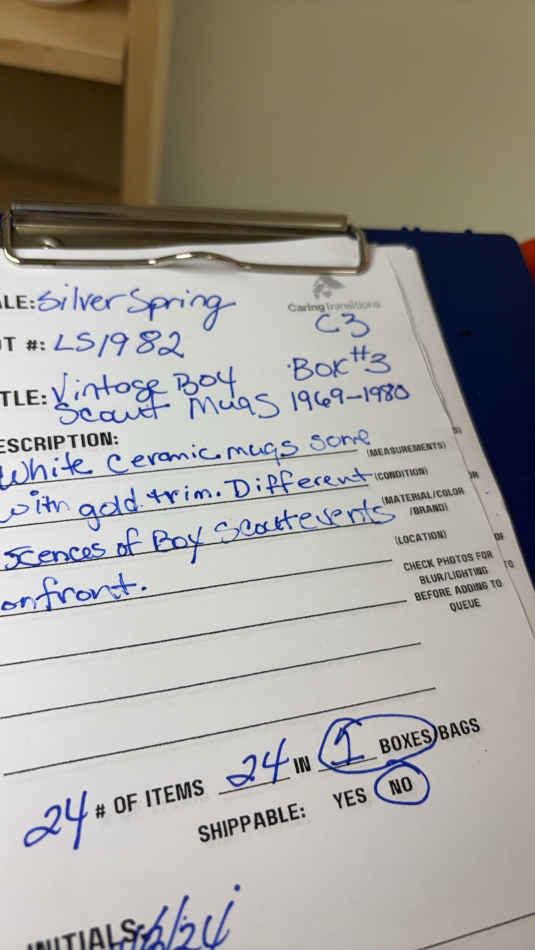 ALE: Silver Spring
Caring Transitions
C3
OT #: LS1982
Box #3
TLE: Vintage Boy
Scout Mugs 1969-1980
ESCRIPTION:
White Ceramic mugs some
(MEASUREMENTS)
with gold trim. Different
(CONDITION)
(MATERIAL/COLOR
/BRAND)
Scences of Boy Scout events
(LOCATION)
on front.
CHECK PHOTOS FOR
BLUR/LIGHTING
BEFORE ADDING TO
QUEUE
24 # OF ITEMS 24 IN 1 BOXES/BAGS
SHIPPABLE: YES NO
INITIALS: